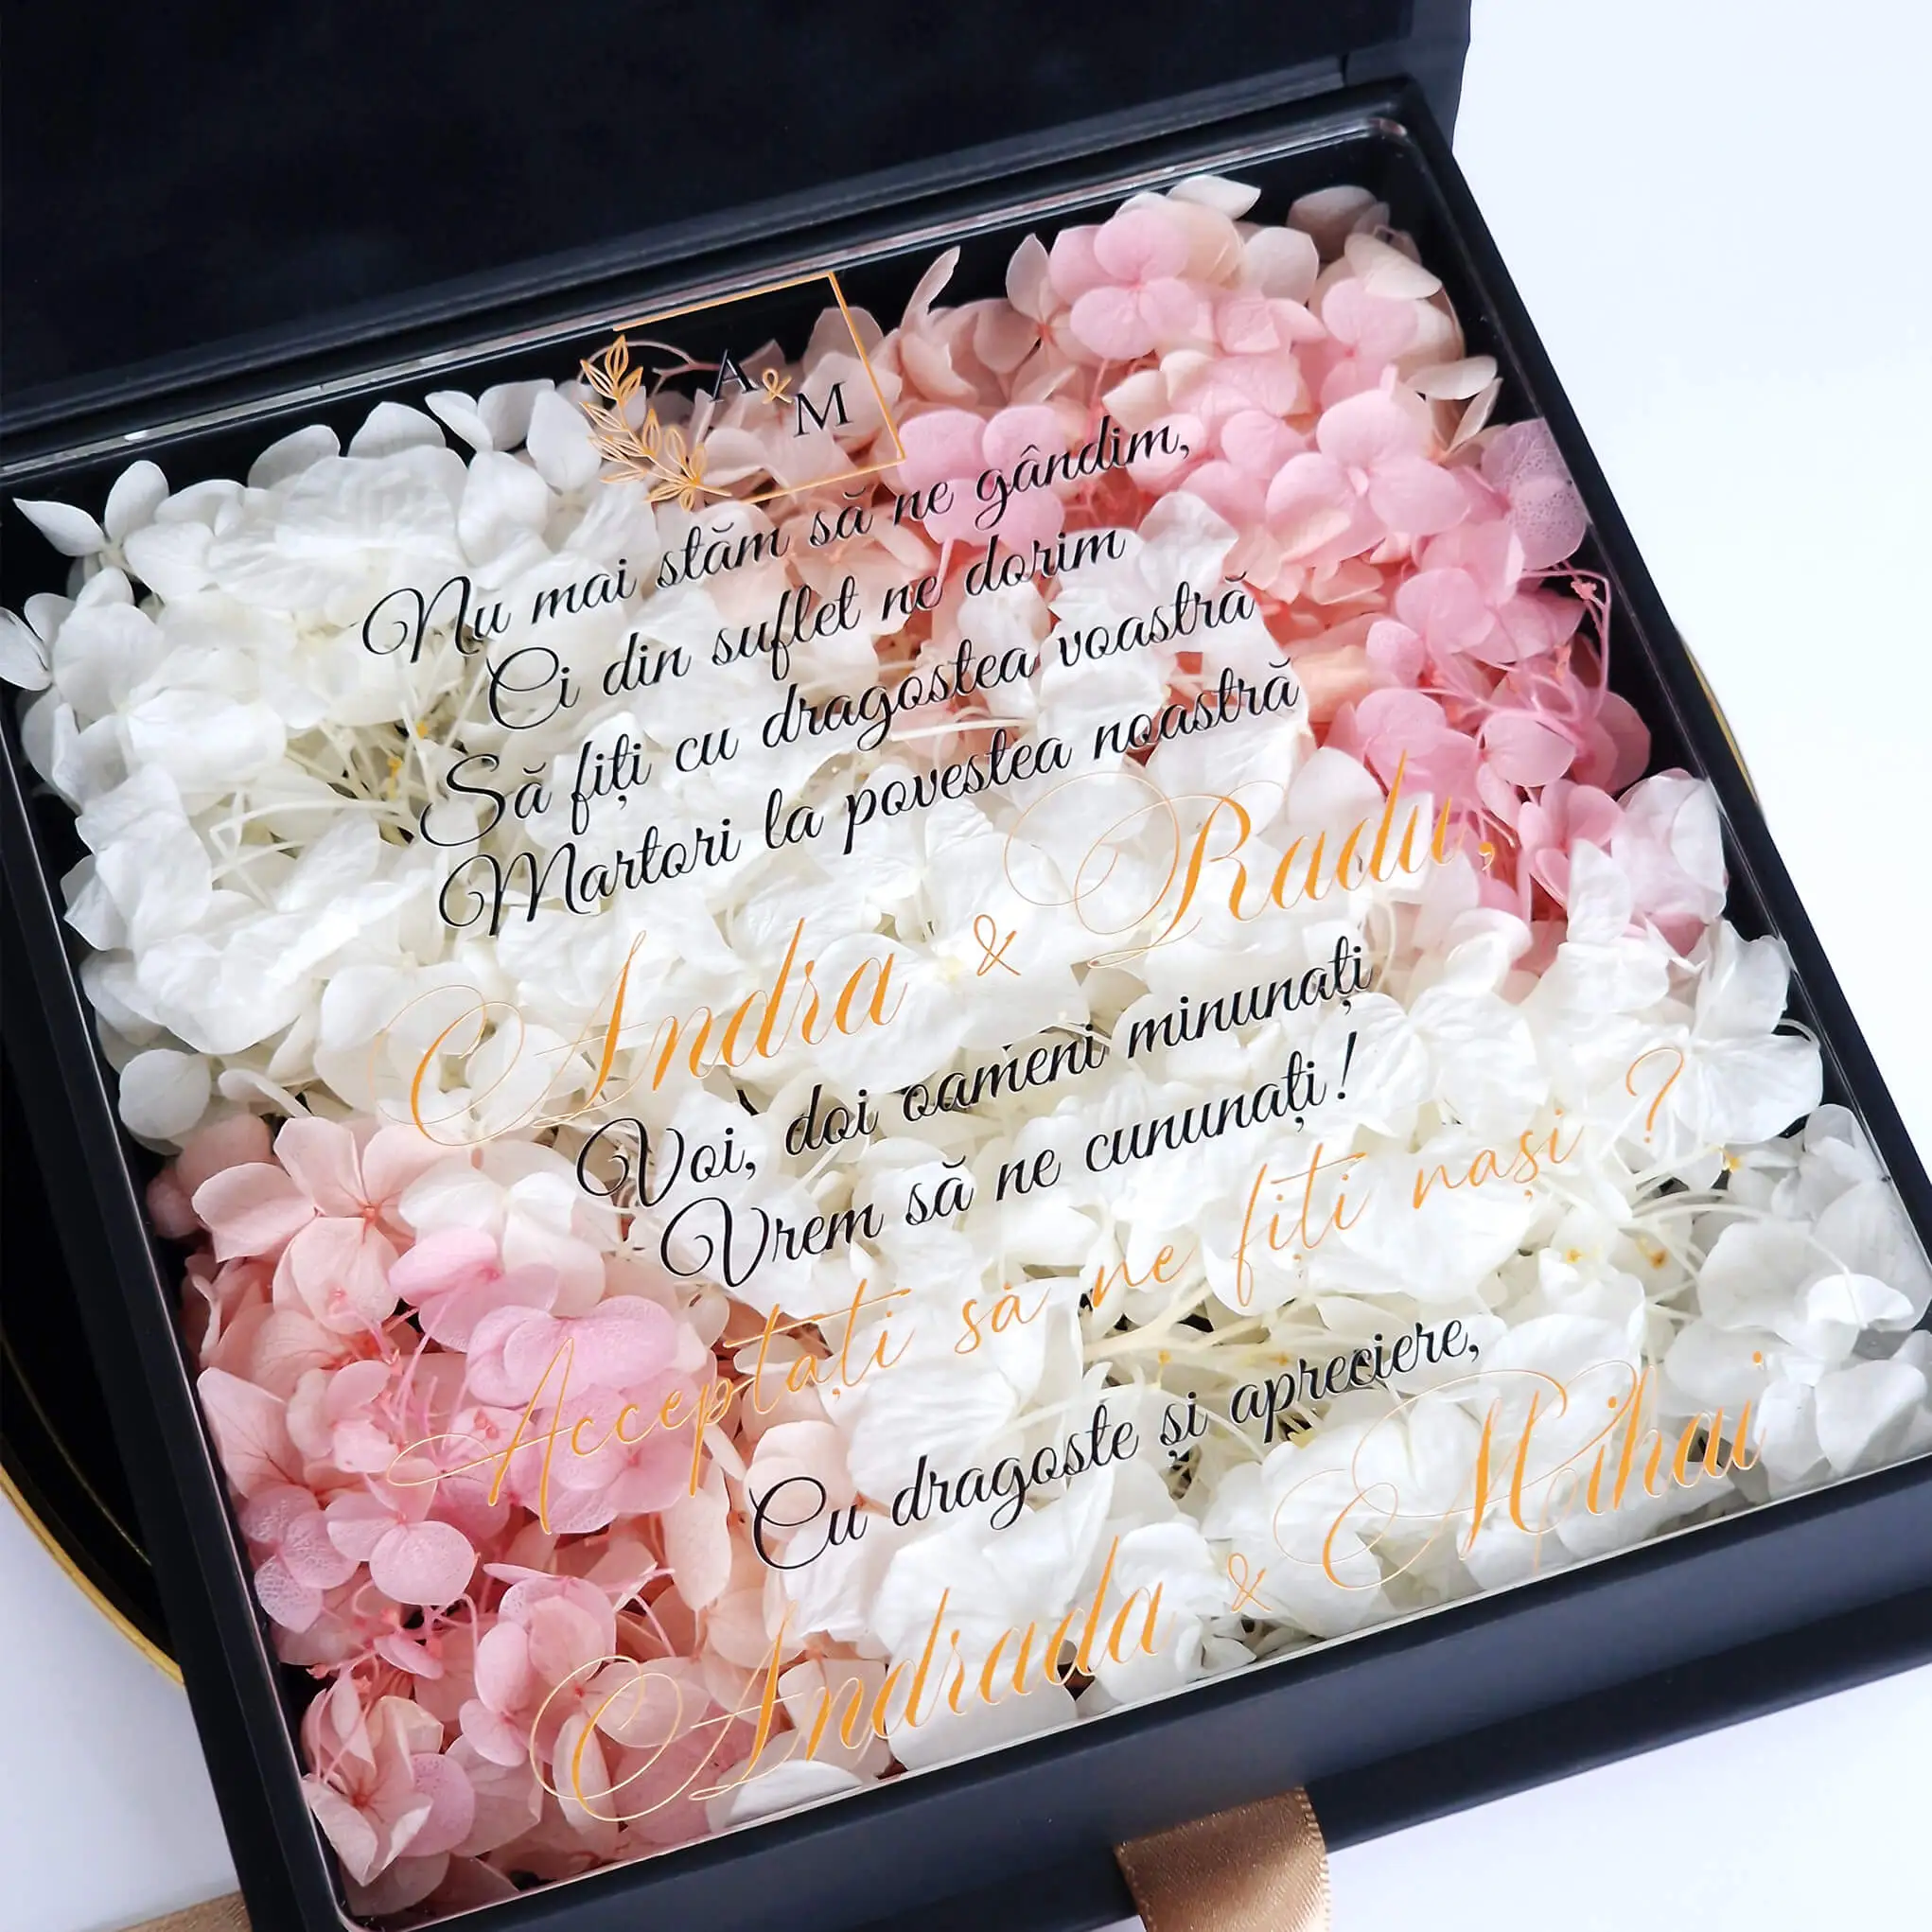 A & M
Nu mai stăm să ne gândim,
Ci din suflet ne dorim
Să fiți cu dragostea voastră
Martori la povestea noastră
Andra & Radu,
Voi, doi oameni minunați
Vrem să ne cununați!
Acceptați să ne fiți nași ?
Cu dragoste și apreciere,
Andrada & Mihai